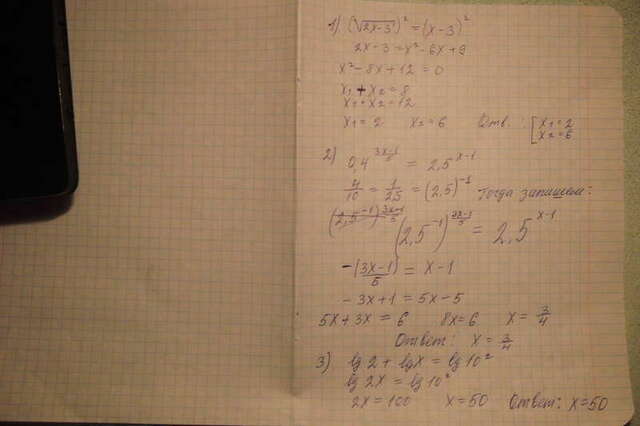 1) (√2x-3)² = (x-3)²
2x-3 = x²-6x+9
x²-8x+12 = 0
x₁ + x₂ = 8
x₁ · x₂ = 12
x₁ = 2 x₂ = 6 Отв.: [x₁ = 2
x₂ = 6
2) 0,4^(3x-1)/5 = 2,5^x-1
4/10 = 1/2,5 = (2,5)^-1 Тогда запишем:
(2,5^-1)^(3x-1)/5 = 2,5^x-1
-(3x-1)/5 = x-1
-3x+1 = 5x-5
5x+3x = 6 8x=6 x = 3/4
Ответ: x = 3/4
3) lg 2 + lg x = lg 10²
lg 2x = lg 10²
2x = 100 x = 50 Ответ: x=50